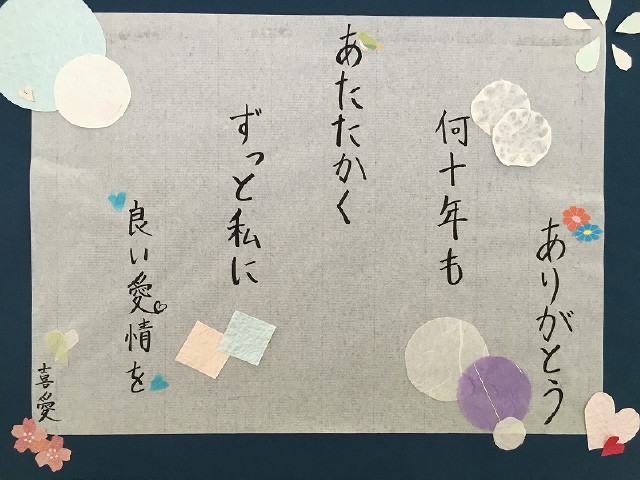 ありがとう
何十年も
あたたかく
ずっと私に
良い愛情を
喜愛